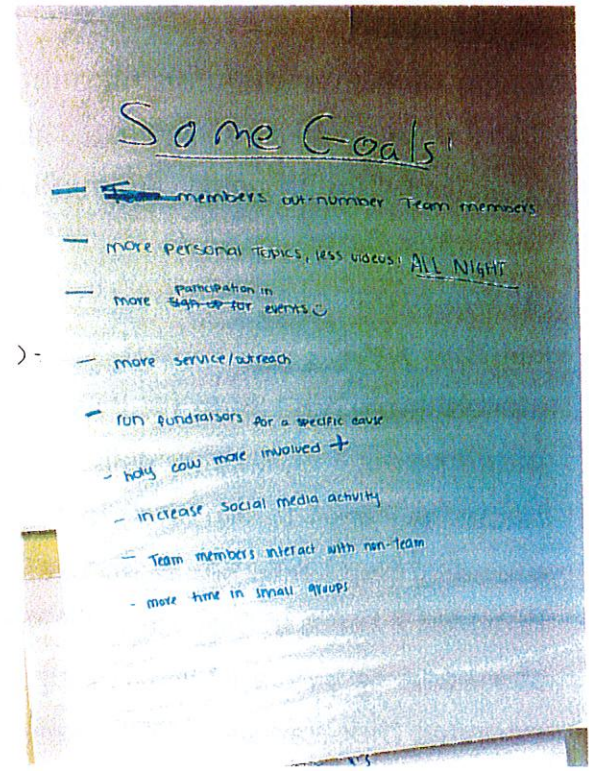 Some Goals!
- members out-number Team members
- more personal topics, less videos! ALL NIGHT
participation in
- more sign-up for events
- more service/outreach
- run fundraisors for a specific cause
- holy cow more involved +
- increase social media activity
- Team members interact with non-team
- more time in small groups